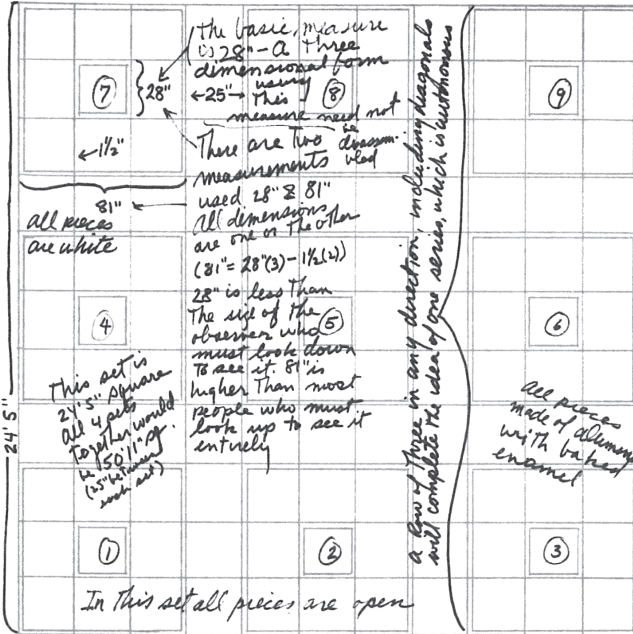 the basic measure
is 28" - A Three
dimensional form
using
This
measure need not
be
disassem-
bled
⑦
28"
←25"→
⑧
⑨
←1½"
81"
There are Two
measurements
used 28" & 81"
All dimensions
are one or the other
(81" = 28"(3) - 1½(2))
28" is less Than
The size of the
observer who
must look down
To see it. 81" is
higher Than most
people who must
look up to see it
entirely
all pieces
are white
④
⑤
⑥
24'5"
This set is
24'5" square
all 4 sets
together would
be 50'11" sq.
(25" between
each set)
a Row of Three in any direction, including diagonals
will complete the idea of one series, which is autonomous
all pieces
made of aluminum
with baked
enamel
①
②
③
In This set all pieces are open